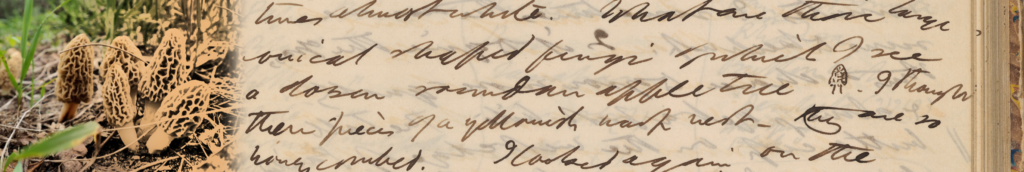 times almost white. What are those large
conical shaped fungi which I see
a dozen round an apple tree. I thought
them pieces of a yellowish wasp nest— they are so
honey combed. I looked again on the